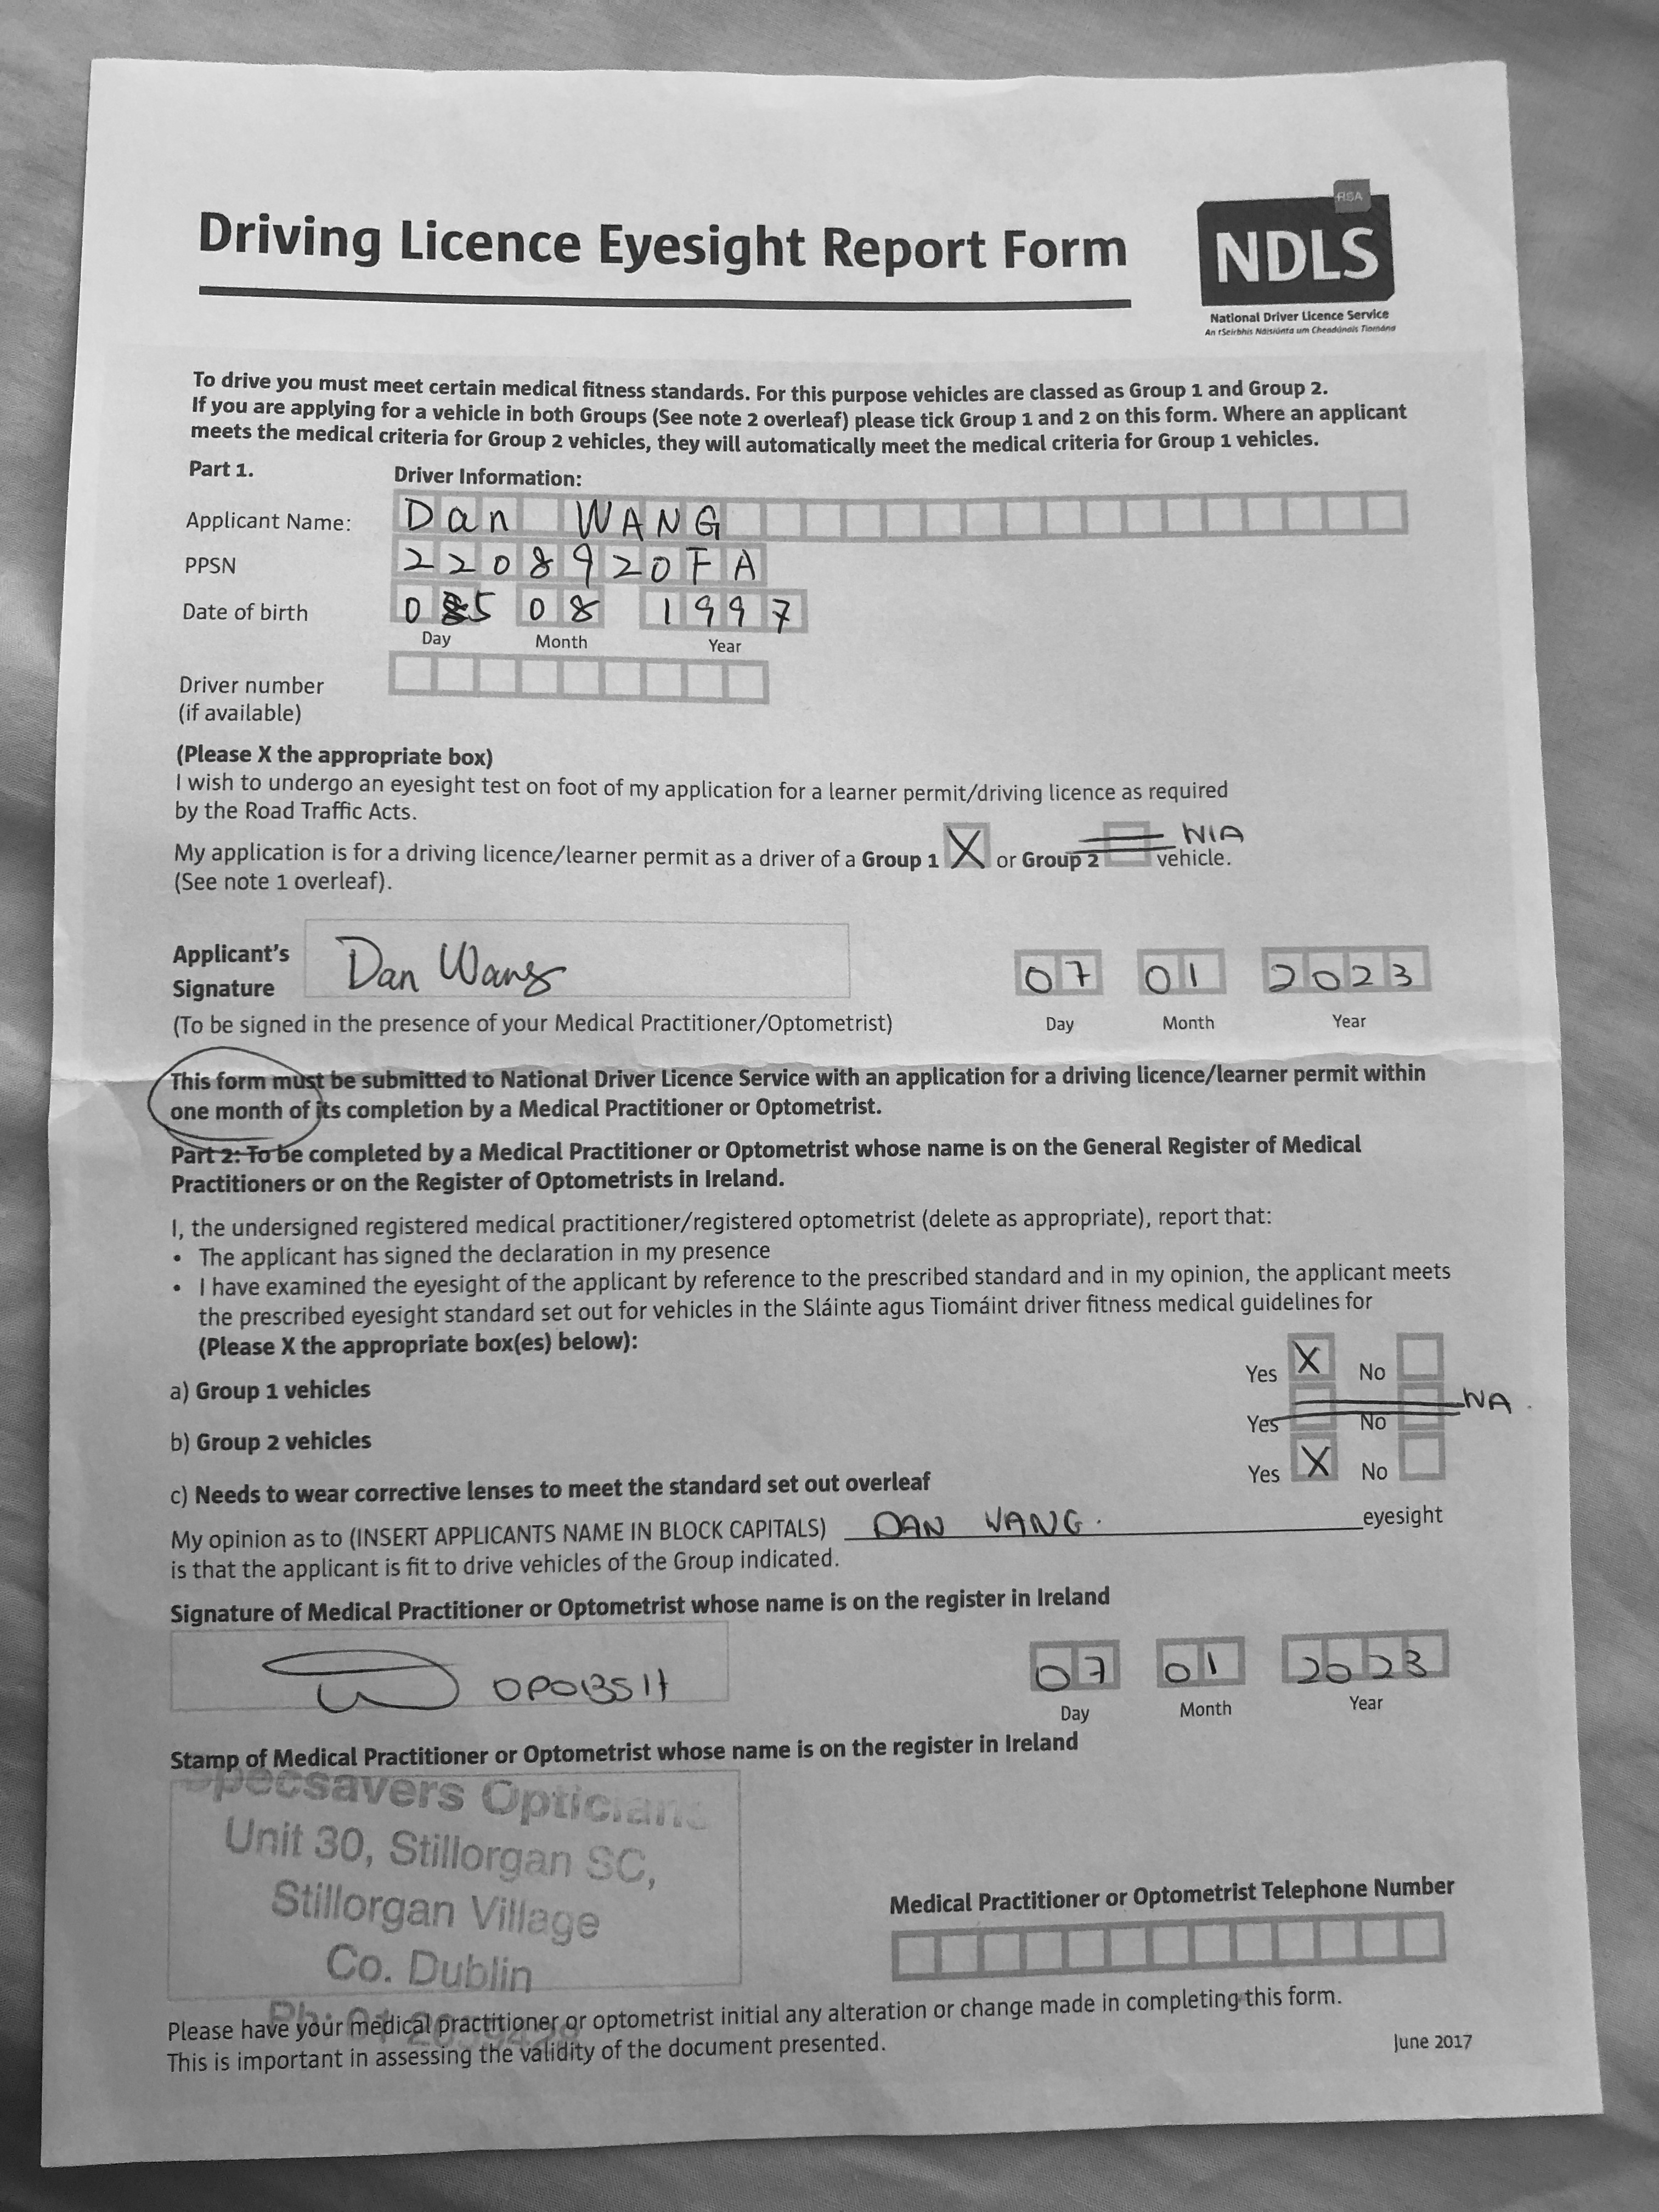 Driving Licence Eyesight Report Form
RSA
NDLS
National Driver Licence Service
An tSeirbhís Náisiúnta um Cheadúnais Tiomána
To drive you must meet certain medical fitness standards. For this purpose vehicles are classed as Group 1 and Group 2.
If you are applying for a vehicle in both Groups (See note 2 overleaf) please tick Group 1 and 2 on this form. Where an applicant
meets the medical criteria for Group 2 vehicles, they will automatically meet the medical criteria for Group 1 vehicles.
Part 1. Driver Information:
Applicant Name: Dan WANG
PPSN 2208920FA
Date of birth 05 08 1997
Day Month Year
Driver number
(if available)
(Please X the appropriate box)
I wish to undergo an eyesight test on foot of my application for a learner permit/driving licence as required
by the Road Traffic Acts.
My application is for a driving licence/learner permit as a driver of a Group 1 X or Group 2 vehicle. N/A
(See note 1 overleaf).
Applicant's
Signature Dan Wang 07 01 2023
(To be signed in the presence of your Medical Practitioner/Optometrist) Day Month Year
This form must be submitted to National Driver Licence Service with an application for a driving licence/learner permit within
one month of its completion by a Medical Practitioner or Optometrist.
Part 2: To be completed by a Medical Practitioner or Optometrist whose name is on the General Register of Medical
Practitioners or on the Register of Optometrists in Ireland.
I, the undersigned registered medical practitioner/registered optometrist (delete as appropriate), report that:
• The applicant has signed the declaration in my presence
• I have examined the eyesight of the applicant by reference to the prescribed standard and in my opinion, the applicant meets
the prescribed eyesight standard set out for vehicles in the Sláinte agus Tiomáint driver fitness medical guidelines for
(Please X the appropriate box(es) below):
a) Group 1 vehicles Yes X No
b) Group 2 vehicles Yes No NA
c) Needs to wear corrective lenses to meet the standard set out overleaf Yes X No
My opinion as to (INSERT APPLICANTS NAME IN BLOCK CAPITALS) DAN WANG. eyesight
is that the applicant is fit to drive vehicles of the Group indicated.
Signature of Medical Practitioner or Optometrist whose name is on the register in Ireland
07 01 2023
Day Month Year
Stamp of Medical Practitioner or Optometrist whose name is on the register in Ireland
Specsavers Opticians
Unit 30, Stillorgan SC,
Stillorgan Village
Co. Dublin
Ph: 01
Medical Practitioner or Optometrist Telephone Number
Please have your medical practitioner or optometrist initial any alteration or change made in completing this form.
This is important in assessing the validity of the document presented.
June 2017